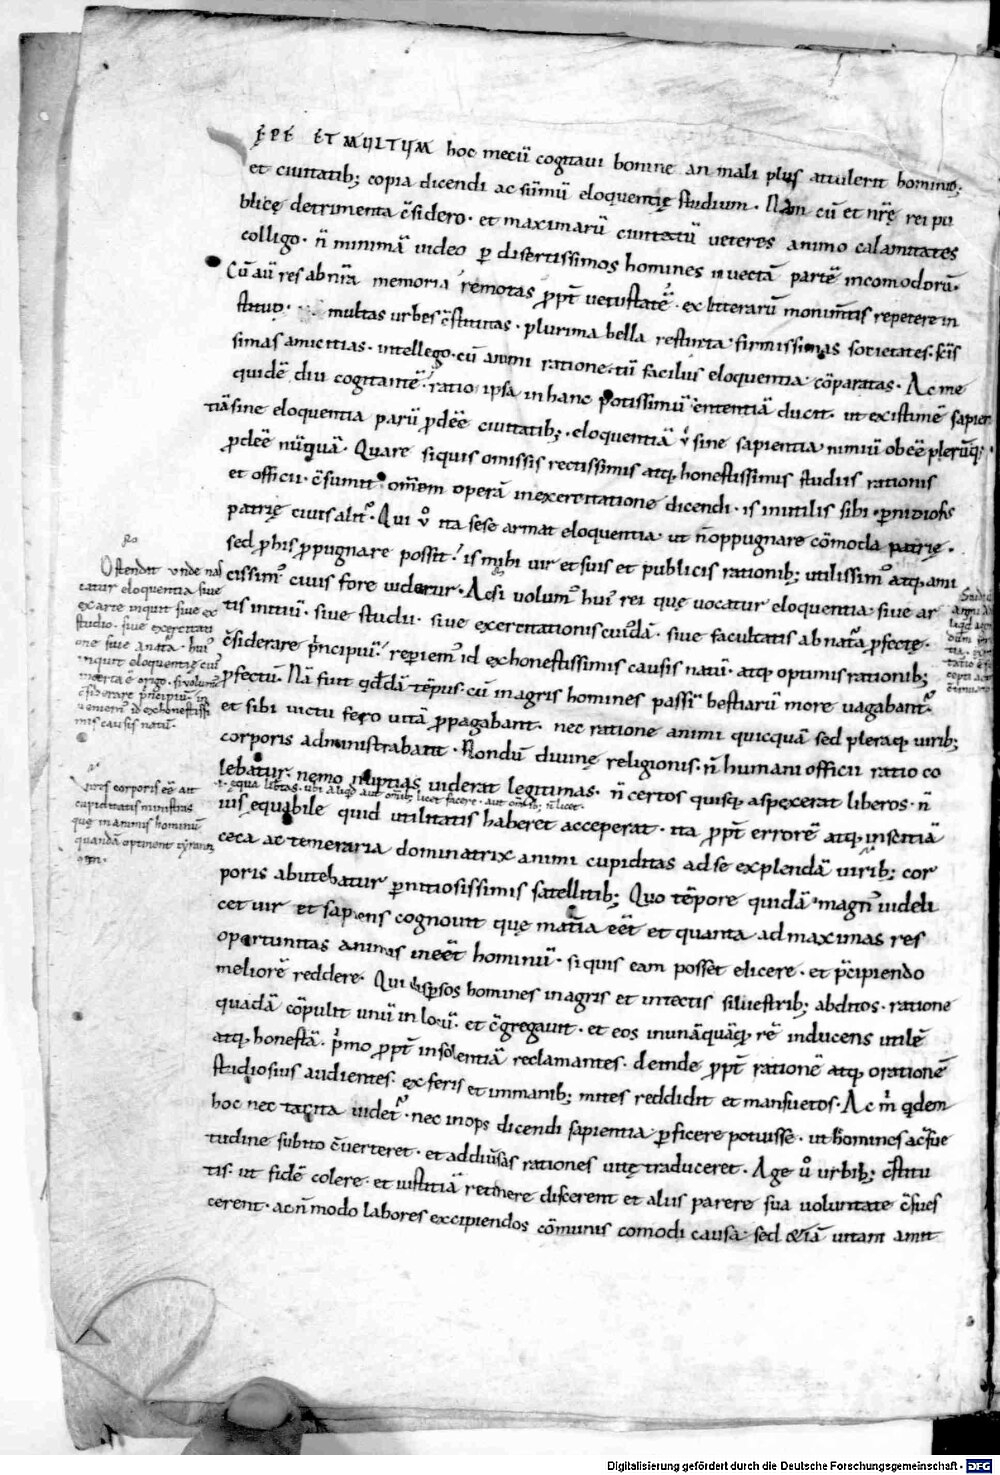 ĘPĘ ET MULTUM hoc mecū cogitaui bonine an mali plus attulerit hominib;
et ciuitatib; copia dicendi ac sūmū eloquentię studium. Nam cū et nr̄ę rei pu
blicę detrimenta c̄sidero. et maximarū ciuitatū ueteres animo calamitates
colligo. n̄ minimā uideo p disertissimos homines inuectā partē incomodorū.
Cū aū res ab nr̄a memoria remotas ppt̄ uetustatē. ex litterarū monum̄tis repetere in
stituo. multas urbes c̄stitutas. plurima bella restincta firmissimas societates. sc̄is
simas amicitias. intellego. cū animi ratione. tū facilius eloquentia cōparatas. Ac me
quidē diu cogitantē. ratio ipsa in hanc potissimū sententiā ducit. ut existimē sapien
tiā sine eloquentia parū pdēe ciuitatib;. eloquentiā ů sine sapientia nimiū obēe plerūq;
pdēe nūquā. Quare siquis omissis rectissimis atq; honestissimis studiis rationis
et officii. c̄sumit om̄em operā in exercitatione dicendi. is inutilis sibi. pniciosus
patrię ciuis alit᷑. Qui ů ita sese armat eloquentia ut n̄ oppugnare cōmoda patrię.
sed p his ppugnare possit. is mihi uir et suis et publicis rationib; utilissimꝰ atq; ami
cissimꝰ ciuis fore uidetur. Ac si volumꝰ huiꝰ rei quę vocatur eloquentia siue ar
tis initiū. siue studii. siue exercitationis cuiꝰdā. siue facultatis ab nat᷑a pfectę.
c̄siderare p̄ncipiū. repiemꝰ id ex honestissimis causis natū. atq; optimis rationib;
pfectū. Nā fuit qđdā tēpus. cū in agris homines passī bestiarū more uagabant᷑.
et sibi uictu fero uitā ppagabant. nec ratione animi quicquā sed pleraq; uirib;
corporis administrabant. Nondū diuinę religionis. n̄ humani officii ratio co
lebatur. nemo nuptias uiderat legitimas. n̄ certos quisq; aspexerat liberos. n̄
.i. equa libtas. ubi aliqd aut om̄ib; licet facere. aut om̄ib; n̄ licet.
iuis equabile quid utilitatis haberet acceperat. ita ppt̄ errorē atq; inscitiā
ceca ac temeraria dominatrix animi cupiditas ad se explendā uirib; cor
poris abutebatur pnitiosissimis satellitib; Quo tēpore quidā magnꝰ uideli
cet uir et sapiens cognouit quę mat̄ia ēet et quanta ad maximas res
oportunitas animis inēet hominū. siquis eam posset elicere. et p̄cipiendo
meliorē reddere. Qui dispsos homines in agris et in tectis siluestrib; abditos. ratione
quadā cōpulit unū in locū. et c̄gregauit. et eos in unāquāq; rē inducens utilē
atq; honestā. p̄mo ppt̄ insolentiā reclamantes. deinde ppt̄ rationē atq; orationē
studiosius audientes. ex feris et immanib; mites reddidit et mansuetos. Ac m̄ qdem
hoc nec tacita uidet᷑. nec inops dicendi sapientia pficere potuisse. ut homines a c̄sue
tudine subito c̄uerteret. et ad diu̓sas rationes uitę traduceret. Age ů urbib; c̄stitu
tis. ut fidē colere. et iustitiā retinere discerent et aliis parere sua uoluntate c̄sues
cerent. ac n̄ modo labores excipiendos cōmunis comodi causa. sed etiā uitam amit
Ostendit unde nas
catur eloquentia siue
ex arte inquit siue ex
studio. siue exercitati
one siue a nat᷑a. huiꝰ
inquit eloquentię cuiꝰ
incerta ē origo. si volumꝰ
c̄siderare p̄ncipiū. in
ueniemꝰ id ex honestissi
mis causis natū.
Vires corporis ēe ait
cupiditatis ministras
quę in animis hominū
quandā optinent tyranni
Digitalisierung gefördert durch die Deutsche Forschungsgemeinschaft - DFG